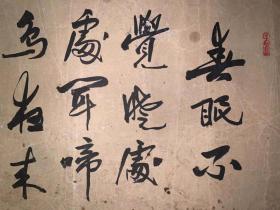 春眠不
覺曉處
處聞啼
鳥夜来